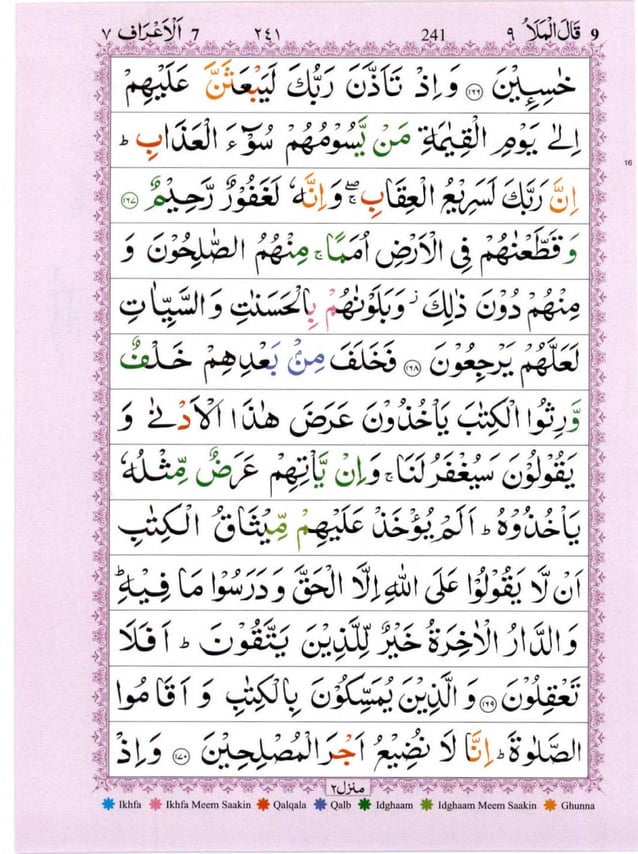 ٧ اَلْاَعْرَاف 7 ٢٤١ 241 قَالَ الْمَلَاُ ٩ 9
خٰسِـِٕيْنَ ﴿١٦٦﴾ وَاِذْ تَاَذَّنَ رَبُّكَ لَيَبْعَثَنَّ عَلَيْهِمْ
اِلٰى يَوْمِ الْقِيٰمَةِ مَنْ يَّسُوْمُهُمْ سُوْٓءَ الْعَذَابِ ؕ
اِنَّ رَبَّكَ لَسَرِيْعُ الْعِقَابِ ۖۚ وَاِنَّهٗ لَغَفُوْرٌ رَّحِيْمٌ ﴿١٦٧﴾
وَقَطَّعْنٰهُمْ فِى الْاَرْضِ اُمَمًا ۚ مِنْهُمُ الصّٰلِحُوْنَ وَ
مِنْهُمْ دُوْنَ ذٰلِكَ ۡ وَبَلَوْنٰهُمْ بِالْحَسَنٰتِ وَالسَّيِّاٰتِ
لَعَلَّهُمْ يَرْجِعُوْنَ ﴿١٦٨﴾ فَخَلَفَ مِنْۢ بَعْدِهِمْ خَلْفٌ
وَّرِثُوا الْكِتٰبَ يَاْخُذُوْنَ عَرَضَ هٰذَا الْاَدْنٰى وَ
يَقُوْلُوْنَ سَيُغْفَرُ لَنَا ۚ وَاِنْ يَّاْتِهِمْ عَرَضٌ مِّثْلُهٗ
يَاْخُذُوْهُ ؕ اَلَمْ يُؤْخَذْ عَلَيْهِمْ مِّيْثَاقُ الْكِتٰبِ
اَنْ لَّا يَقُوْلُوْا عَلَى اللّٰهِ اِلَّا الْحَقَّ وَدَرَسُوْا مَا فِيْهِ ؕ
وَالدَّارُ الْاٰخِرَةُ خَيْرٌ لِّلَّذِيْنَ يَتَّقُوْنَ ؕ اَفَلَا
تَعْقِلُوْنَ ﴿١٦٩﴾ وَالَّذِيْنَ يُمَسِّكُوْنَ بِالْكِتٰبِ وَاَقَامُوا
الصَّلٰوةَ ؕ اِنَّا لَا نُضِيْعُ اَجْرَ الْمُصْلِحِيْنَ ﴿١٧٠﴾ وَاِذْ
16
منزل ٢
Ikhfa Ikhfa Meem Saakin Qalqala Qalb Idghaam Idghaam Meem Saakin Ghunna